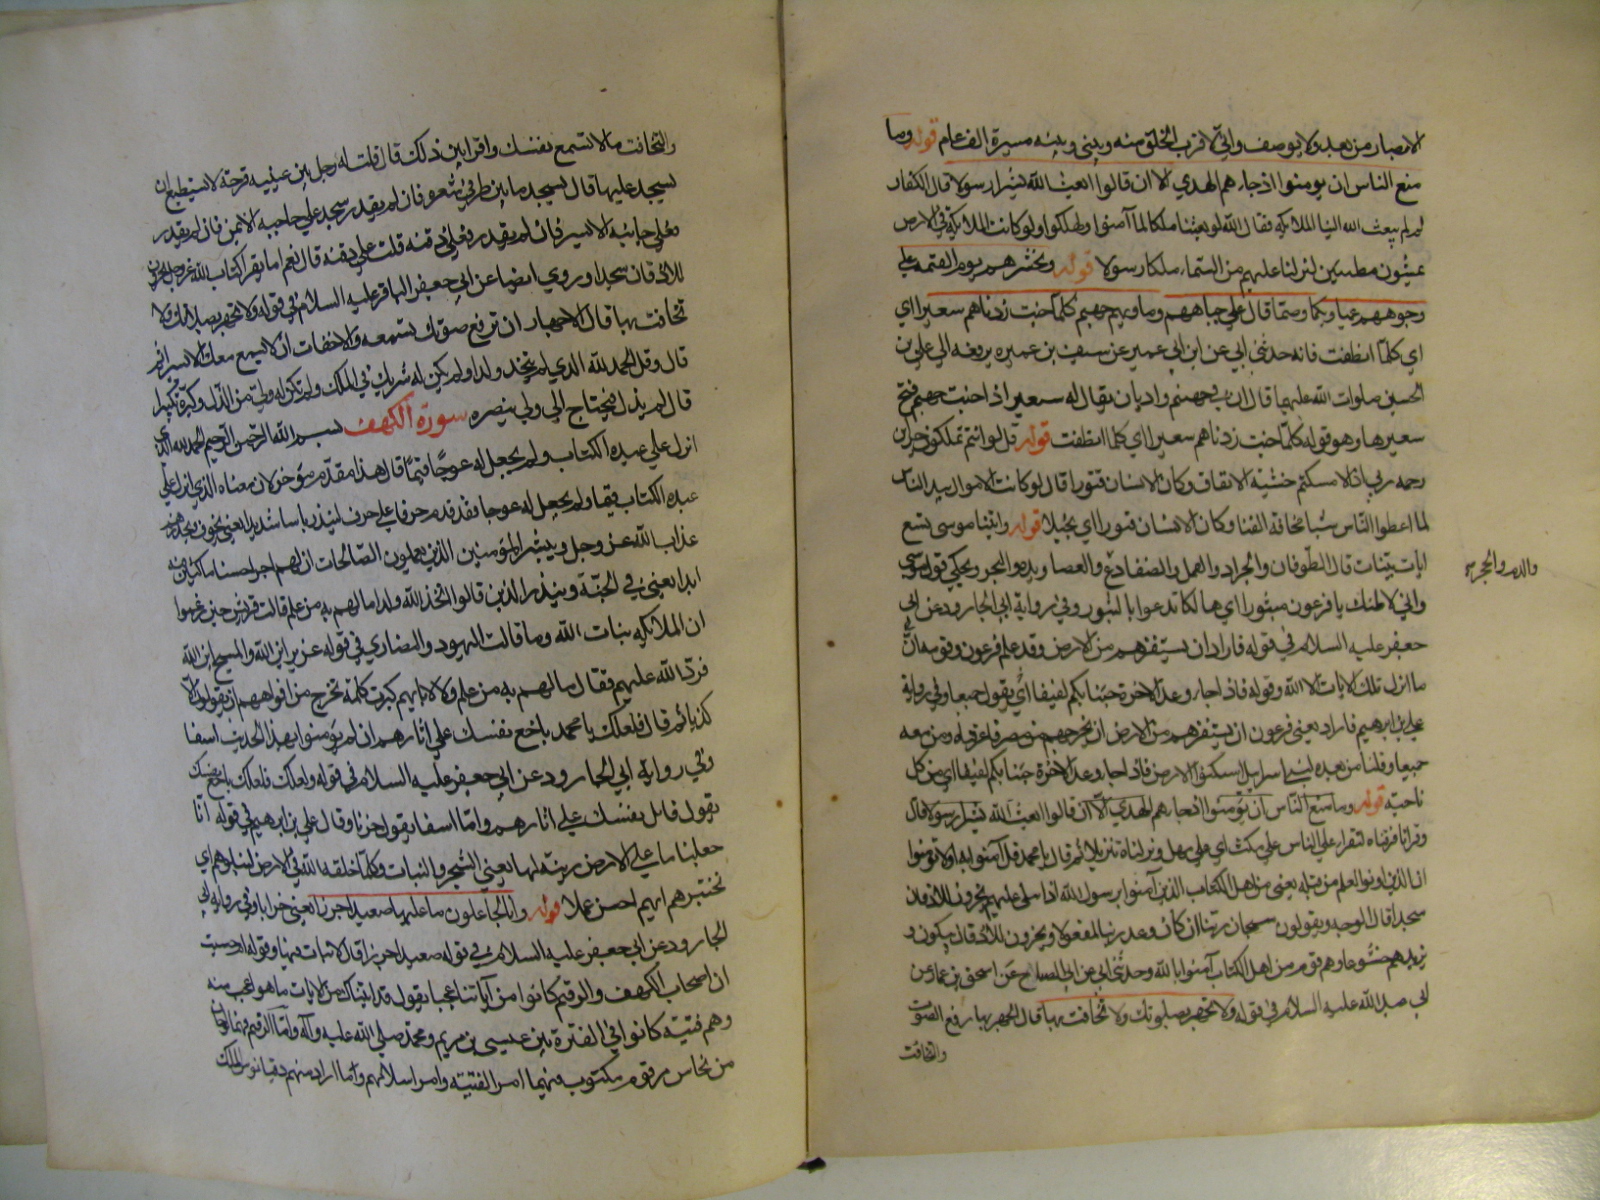 الابصار من بعد ولا يوصف واني لاقرب الخلق منه وبيني وبينه مسيرة الف عام قوله وما
منع الناس ان يؤمنوا اذ جاءهم الهدي الا ان قالوا ابعث الله بشرا رسولا قال الكفار
لم لم يبعث الله الينا الملائكة فقال الله لو بعثنا ملكا لما آمنوا ولهلكوا ولو كانت الملائكة في الارض
يمشون مطمئنين لنزلنا عليهم من السماء ملكا رسولا قوله ونحشرهم يوم القيمة علي
وجوههم عميا وبكما وصما قال علي جباههم وماويهم جهنم كلما خبت زدناهم سعيرا اي
اي كلما انطفت فانه حدثني ابي عن ابن ابي عمير عن سيف بن عميره يرفعه الي علي بن
الحسين صلوات الله عليهما قال ان في جهنم واديان يقال له سعير اذا خبت جهنم فتح
سعيرها وهو قوله كلما خبت زدناهم سعيرا اي كلما انطفت قوله قل لو انتم تملكون خزاين
رحمه ربي اذا لامسكتم خشية الانفاق وكان الانسان قتورا قال لو كانت الاموال بيد الناس
لما اعطوا الناس شيا مخافة الفنا وكان الانسان قتورا اي بخيلا قوله واتينا موسي تسع
ايات بينات قال الطوفان والجراد والقمل والضفادع والعصا ويده والبحر ويحكي قول موسي
والدم والحجر
واني لاظنك يا فرعون مثبورا اي هالكا تدعوا بالثبور وفي رواية ابي الجارود عن ابي
جعفر عليه السلام في قوله فاراد ان يستفزهم من الارض وقد علم فرعون وقومه ان
ما انزل تلك الايات الا الله وقوله فاذا جاء وعد الاخرة جئنا بكم لفيفا اي يقول جميعا وفي رواية
علي بن ابرهيم فاراد يعني فرعون ان يستفزهم من الارض ان يخرجهم من مصر فاغرقناه ومن معه
جميعا وقلنا من بعده لبني اسرايل اسكنوا الارض فاذا جاء وعد الاخرة جئنا بكم لفيفا اي من كل
ناحية قوله وما منع الناس ان يؤمنوا اذ جاءهم الهدي الا ان قالوا ابعث الله بشرا رسولا قال
وقرانا فرقناه لتقراه علي الناس علي مكث اي علي مهل ونزلناه تنزيلا ثم قال يا محمد قل آمنوا به او لا تؤمنوا
ان الذين اوتوا العلم من قبله يعني من اهل الكتاب الذين آمنوا برسول الله اذا يتلي عليهم يخرون للاذقان
سجدا قال الوجه ويقولون سبحان ربنا ان كان وعد ربنا لمفعولا ويخرون للاذقان يبكون و
يزيدهم خشوعا وهم قوم من اهل الكتاب آمنوا بالله وحدثني ابي عن ابي الصباح عن اسحق بن عمار عن
ابي عبد الله عليه السلام في قوله ولا تجهر بصلوتك ولا تخافت بها قال الجهر بها رفع الصوت
والتخافت
والتخافت ما لا تسمع نفسك واقرا بين ذلك قال قلت له رجل بين عينيه قرحة لا يستطيع ان
يسجد عليها قال يسجد ما بين طرف شعره فان لم يقدر سجد علي حاجبه الايمن فان لم يقدر
فعلي حاجبه الايسر فان لم يقدر فعلي ذقنه قلت علي ذقنه قال نعم اما تقرا كتاب الله عز وجل يخرون
للاذقان سجدا وروي ايضا عن ابي جعفر الباقر عليه السلام في قوله ولا تجهر بصلاتك ولا
تخافت بها قال الاجهار ان ترفع صوتك يسمعه والاخفات ان لا يسمع معك الا يسرا ثم
قال وقل الحمد لله الذي لم يتخذ ولدا ولم يكن له شريك في الملك ولم يكن له ولي من الذل وكبره تكبيرا
قال لم يذل فيحتاج الي ولي ينصره سورة الكهف بسم الله الرحمن الرحيم الحمد لله الذي
انزل علي عبده الكتاب ولم يجعل له عوجا قيما قال هذا مقدم ومؤخر لان معناه الذي انزل علي
عبده الكتاب قيما ولم يجعل له عوجا فقد قدم حرفا علي حرف لينذر باسا شديدا يعني يخوف ويحذرهم
عذاب الله عز وجل ويبشر المؤمنين الذين يعملون الصالحات ان لهم اجرا حسنا ماكثين فيه
ابدا يعني في الجنة وينذر الذين قالوا اتخذ الله ولدا ما لهم به من علم قالت قريش حين زعموا
ان الملائكه بنات الله وما قالت اليهود والنصاري في قوله عزير ابن الله والمسيح ابن الله
فرد الله عليهم فقال ما لهم به من علم ولا لابايهم كبرت كلمة تخرج من افواههم ان يقولون الا
كذبا ثم قال فلعلك يا محمد باخع نفسك علي اثارهم ان لم يؤمنوا بهذا الحديث اسفا
وفي رواية ابي الجارود عن ابي جعفر عليه السلام في قوله فلعلك باخع نفسك
يقول قاتل نفسك علي اثارهم واما اسفا يقول حزنا وقال علي بن ابرهيم في قوله انا
جعلنا ما علي الارض زينة لها يعني الشجر والنبات وكلما خلقه الله في الارض لنبلوهم اي
نختبرهم ايهم احسن عملا قوله وانا لجاعلون ما عليها صعيدا جرزا يعني خرابا وفي رواية ابي
الجارود عن ابي جعفر عليه السلام في قوله صعيدا جرزا قال لا نبات فيها وقوله ام حسبت
ان اصحاب الكهف والرقيم كانوا من آياتنا عجبا يقول قد اتيناك من الايات ما هو اعجب منه
وهم فتية كانوا في الفترة بين عيسي بن مريم ومحمد صلي الله عليه وآله واما الرقيم فهما لوحان
من نحاس مرقوم مكتوب فيهما امر الفتية وامر اسلامهم وما اراد منهم دقيانوس الملك